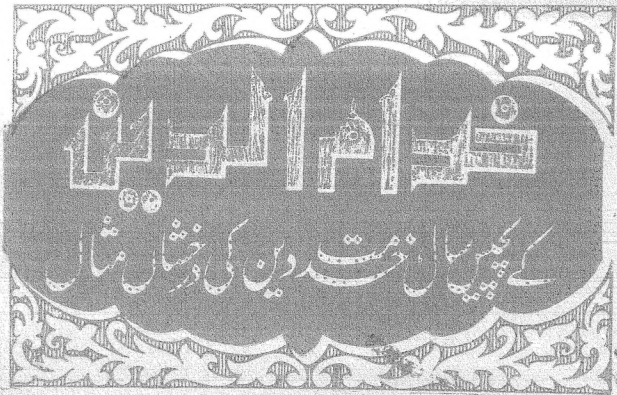 خدام الدین
کے پچیس سال خدمت دین کی درخشاں مثال